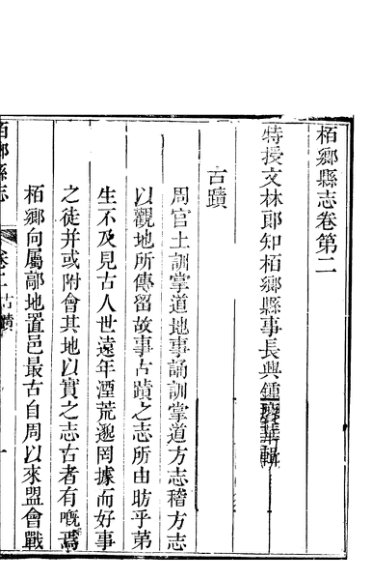 栢鄉縣志卷第二
特授文林郎知栢鄉縣事長興鍾賡華輯
古蹟
周官土訓掌道地事誦訓掌道方志稽方志
以觀地所傳留故事古蹟之志所由昉乎第
生不及見古人世遠年湮荒邈罔據而好事
之徒并或附會其地以實之志古者有嘅焉
栢鄉向屬鄗地置邑最古自周以來盟會戰
栢鄉縣志 卷二 古蹟 一